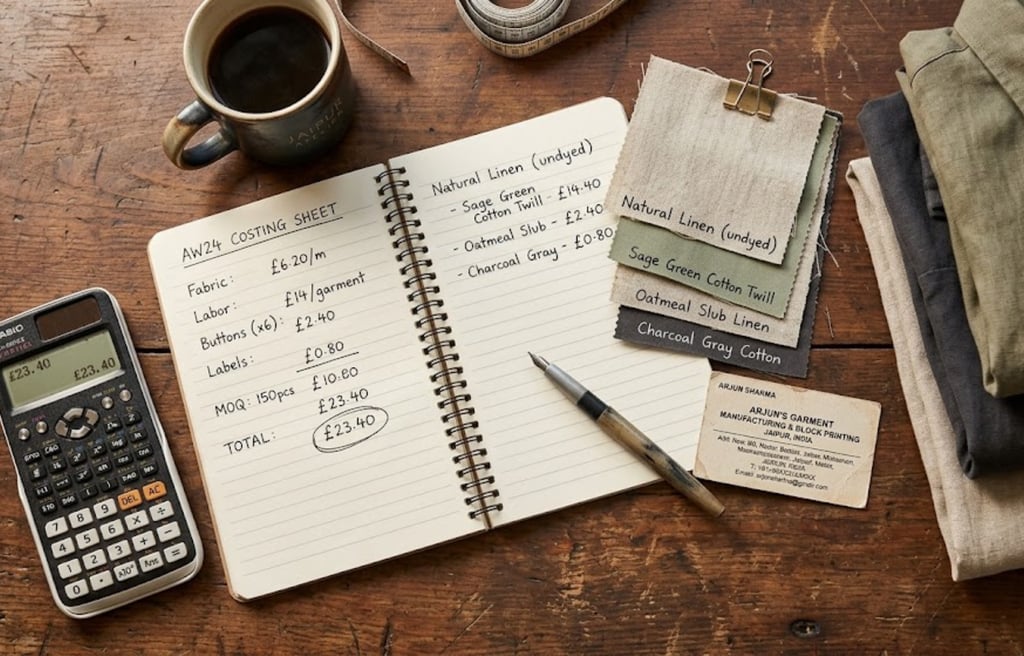 AW24 COSTING SHEET
Fabric: £6.20/m
Labor: £14/garment
Buttons (x6): £2.40
Labels: £0.80
MOQ: 150pcs £10.80
£23.40
TOTAL: £23.40
Natural Linen (undyed)
- Sage Green
Cotton Twill - £14.40
- Oatmeal Slub - £2.40
- Charcoal Gray - £0.80
Natural Linen (undyed)
Sage Green Cotton Twill
Oatmeal Slub Linen
Charcoal Gray Cotton
ARJUN SHARMA
ARJUN'S GARMENT
MANUFACTURING & BLOCK PRINTING
JAIPUR, INDIA
JAIPUR
CASIO
£23.40 £23.40
DEL AC
7 8 9
4 5 6 × ÷
1 2 3 + -
0 . x10ˣ Ans =